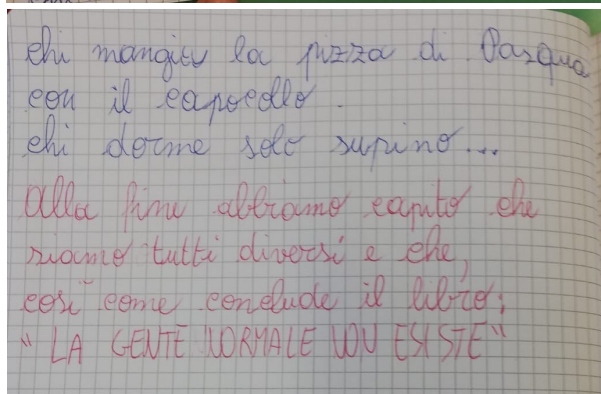 chi mangia la pizza di Pasqua
con il capocollo.
chi dorme solo supino...
Alla fine abbiamo capito che
siamo tutti diversi e che,
così come conclude il libro:
"LA GENTE NORMALE NON ESISTE"